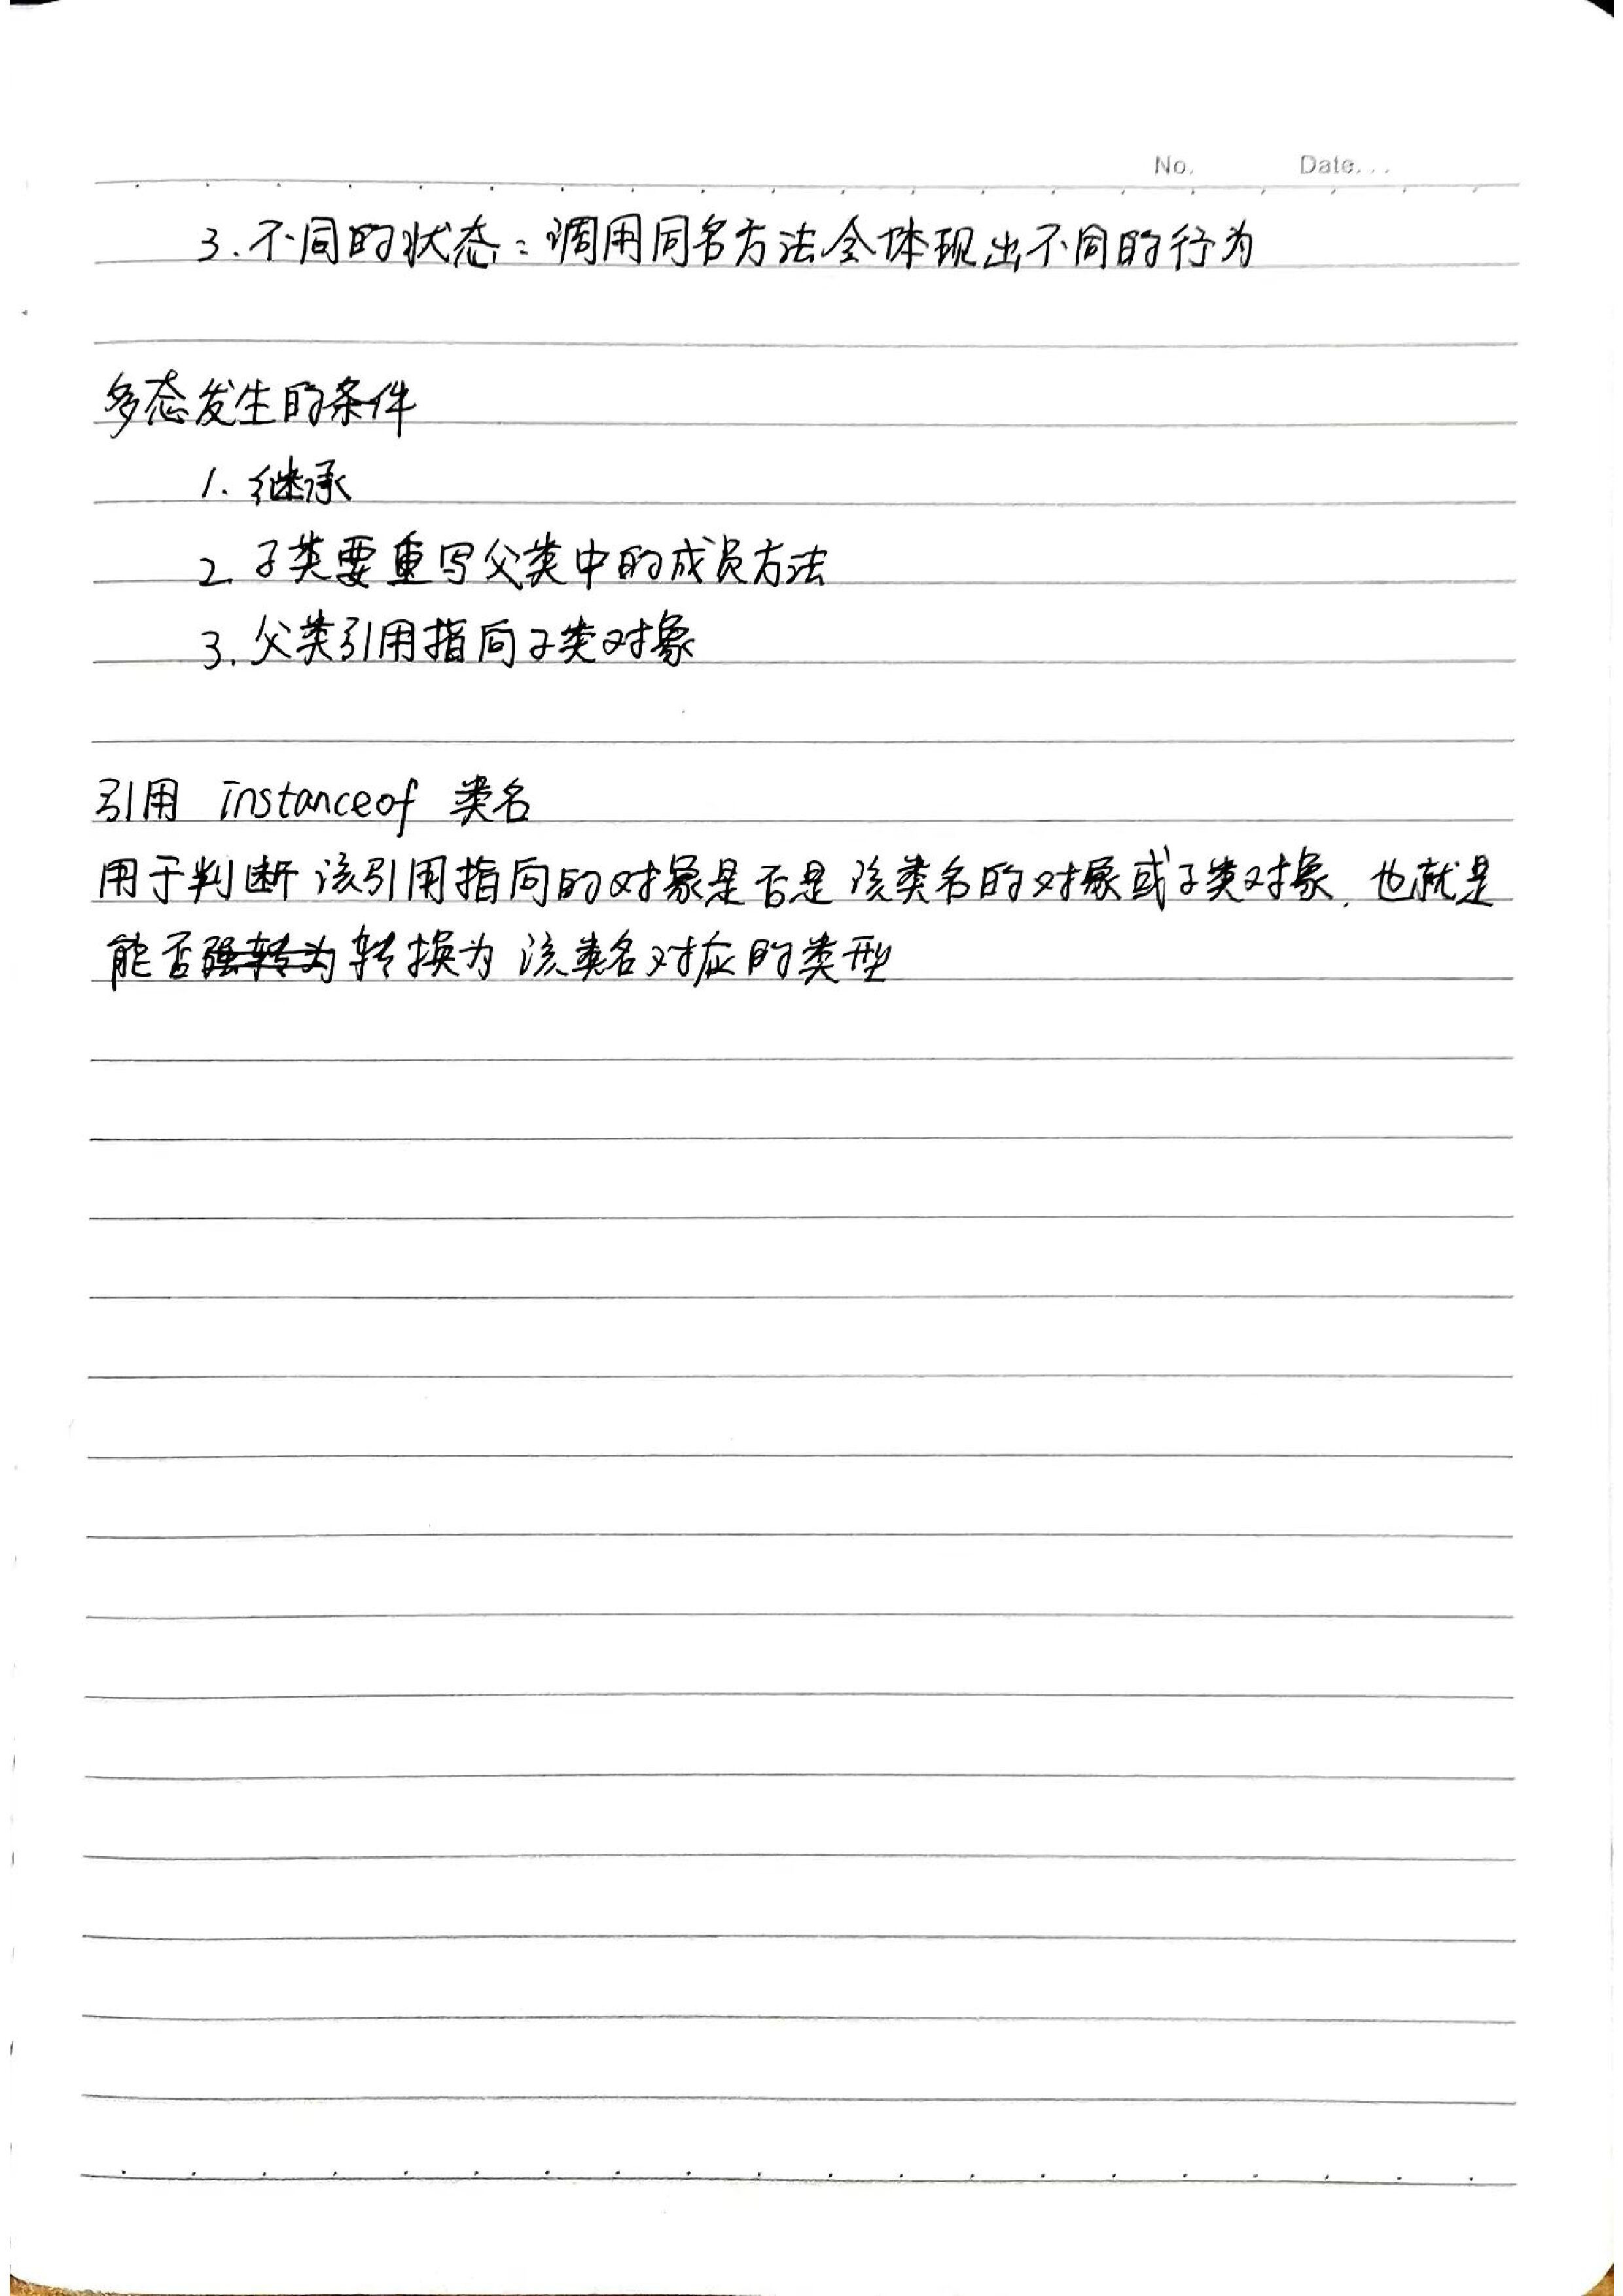 No. Date...
3.不同的状态:调用同名方法会体现出不同的行为
多态发生的条件
1.继承
2.子类要重写父类中的成员方法
3.父类引用指向子类对象
引用 instanceof 类名
用于判断该引用指向的对象是否是该类名的对象或子类对象,也就是
能否强转为转换为该类名对应的类型